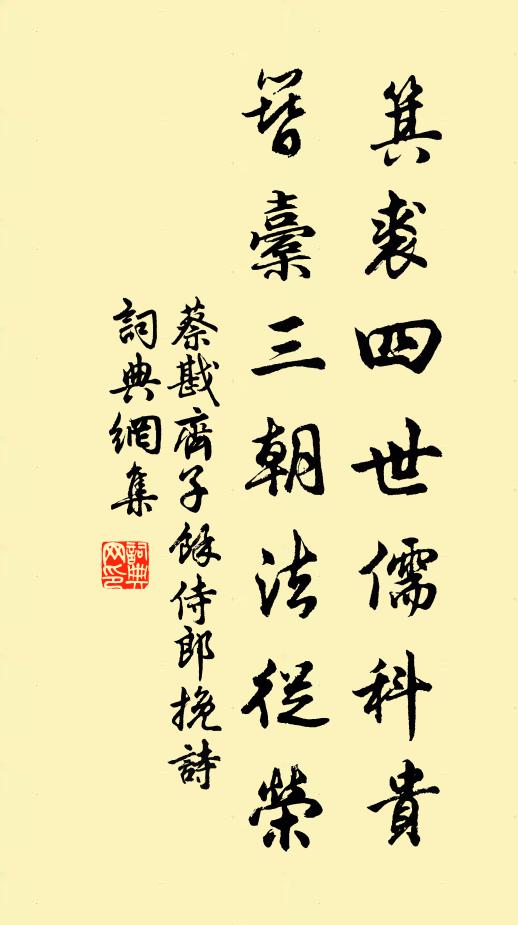 箕裘四世儒科貴
簪橐三朝法從榮
蔡戡齊子餘侍郎挽詩
詞典網集
詞典網印